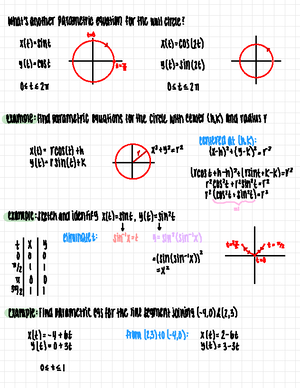 What's another parametric equation for the unit circle?
x(t) = sint
y(t) = cost
0 ≤ t ≤ 2π
t=0
x(t) = cos(2t)
y(t) = sin(2t)
0 ≤ t ≤ 2π
example: Find parametric equations for the circle with center (h,k) and radius r
x(t) = rcos(t)+h
y(t) = rsin(t)+k
r
x²+y²=r²
centered at (h,k):
(x-h)²+(y-k)²=r²
(rcost+h-h)²+(rsint+k-k)=r²
r²cos²t+r²sin²t=r²
r²(cos²t+sin²t)=r²
example: Sketch and identify x(t)=sint, y(t)=sin²t
t x y
0 0 0
π/2 1 1
π 0 0
3π/2 1 1
eliminate t:
sin⁻¹x=t
y=sin²(sin⁻¹x)
=(sin(sin⁻¹x))²
=x²
t=π/2
t=0
example: Find parametric eqs for the line segment joining (-4,0)&(2,3)
x(t)=-4+6t
y(t)=0+3t
0≤t≤1
from (2,3) to (-4,0):
x(t)=2-6t
y(t)=3-3t